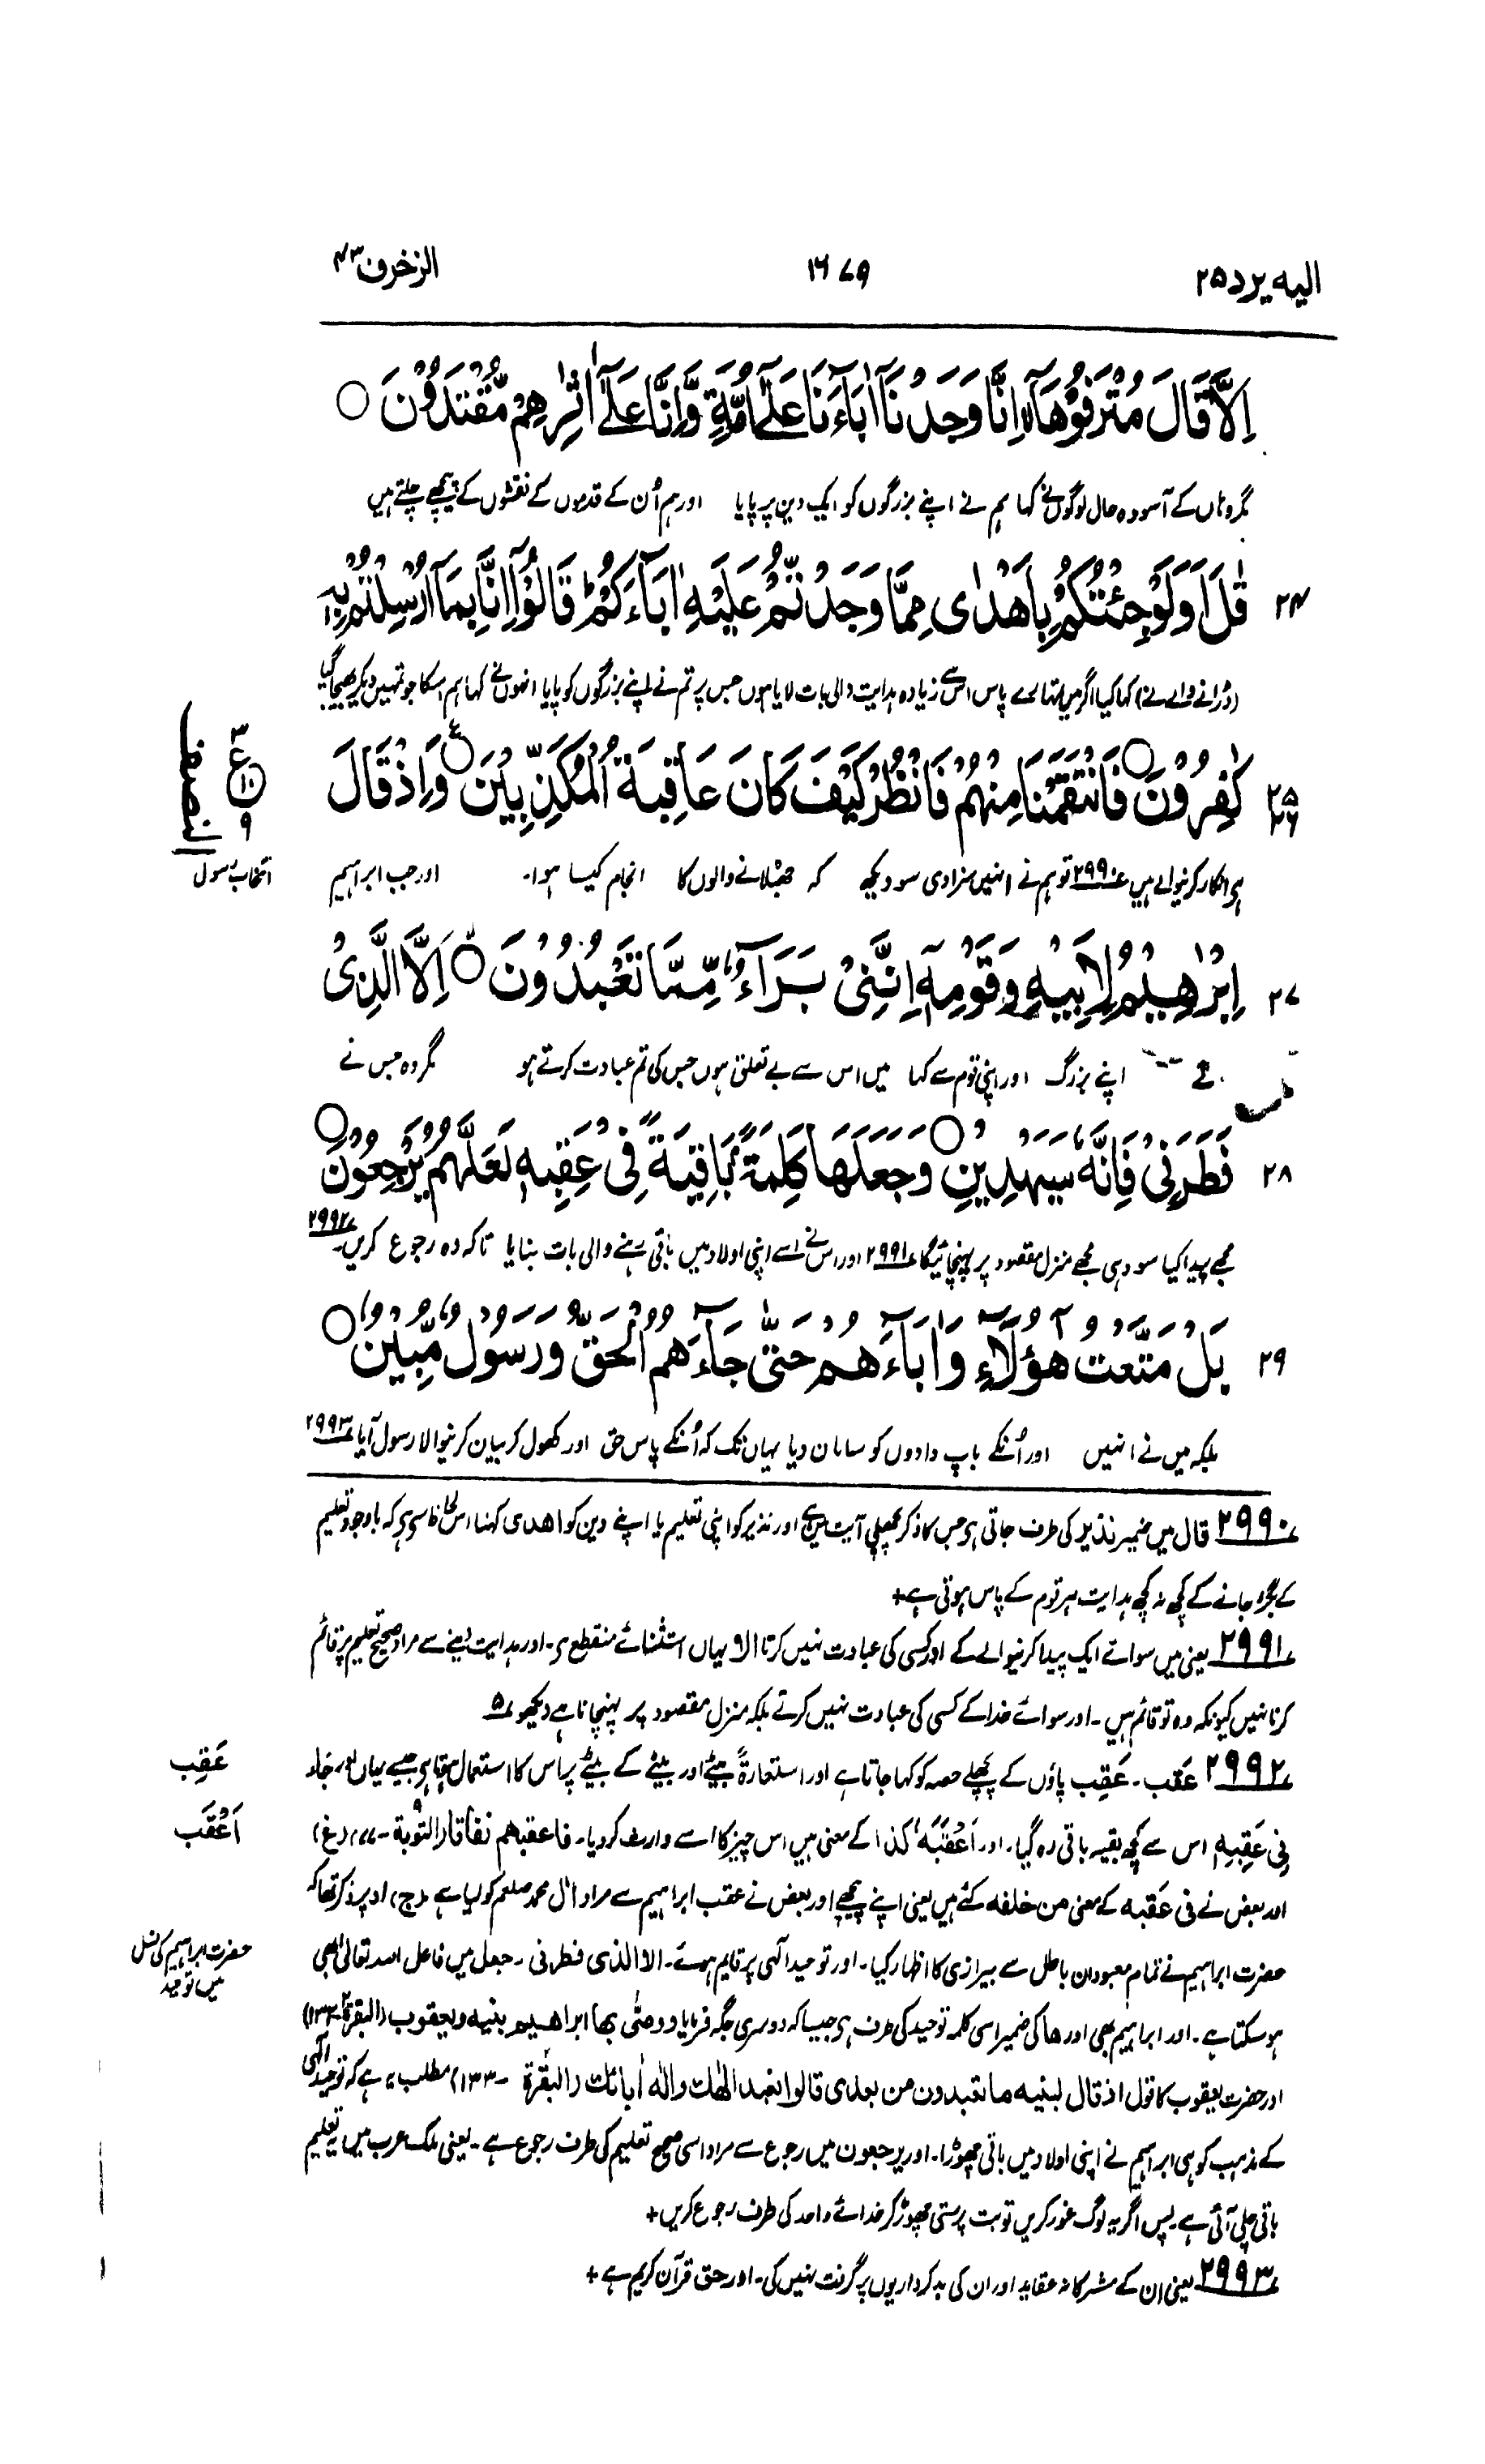 الیہ یرد ۲۵
۱۶۷۹
الزخرف ۴۳
اِلَّا قَالَ مُتْرَفُوْهَاۤ اِنَّا وَجَدْنَاۤ اٰبَآءَنَا عَلٰۤى اُمَّةٍ وَّاِنَّا عَلٰۤى اٰثٰرِهِمْ مُّقْتَدُوْنَ ○
مگر وہاں کے آسودہ حال لوگوں نے کہا ہم نے اپنے بزرگوں کو ایک دین پر پایا اور ہم اُن کے قدموں کے نقشوں کے پیچھے چلتے ہیں
۲۴ قٰلَ اَوَلَوْ جِئْتُكُمْ بِاَهْدٰى مِمَّا وَجَدْتُّمْ عَلَيْهِ اٰبَآءَكُمْ ؕ قَالُوْۤا اِنَّا بِمَاۤ اُرْسِلْتُمْ بِهٖ
(ڈرانے والے نے) کہا کیا اگر میں تمہارے پاس اس سے زیادہ ہدایت والی بات لایا ہوں جس پر تم نے اپنے بزرگوں کو پایا انہوں نے کہا ہم اسکا جو تمہیں دیکر بھیجا گیا
۲۵ ۲۶ كٰفِرُوْنَ ○ فَانْتَقَمْنَا مِنْهُمْ فَانْظُرْ كَيْفَ كَانَ عَاقِبَةُ الْمُكَذِّبِيْنَ ○ ع وَاِذْ قَالَ
۳ ع ۱۰ ۹
النصف
ہے انکار کرنیوالے ہیں ۲۹۹۰ تو ہم نے انہیں سزا دی سو دیکھ کہ جھٹلانے والوں کا انجام کیسا ہوا۔ اور جب ابراہیم
انتخاب رسول
۲۷ اِبْرٰهِيْمُ لِاَبِيْهِ وَقَوْمِهٖۤ اِنَّنِىْ بَرَآءٌ مِّمَّا تَعْبُدُوْنَ ○ اِلَّا الَّذِىْ
نے اپنے بزرگ اور اپنی قوم سے کہا میں اس سے بے تعلق ہوں جس کی تم عبادت کرتے ہو مگر وہ جس نے
۲۸ فَطَرَنِىْ فَاِنَّهٗ سَيَهْدِيْنِ ○ وَجَعَلَهَا كَلِمَةًۢ بَاقِيَةً فِىْ عَقِبِهٖ لَعَلَّهُمْ يَرْجِعُوْنَ ○
مجھے پیدا کیا سو وہی مجھے منزل مقصود پر پہنچائیگا ۲۹۹۱ اور اس نے اسے اپنی اولاد میں باقی رہنے والی بات بنایا تاکہ وہ رجوع کریں۔ ۲۹۹۲
۲۹ بَلْ مَتَّعْتُ هٰۤؤُلَآءِ وَاٰبَآءَهُمْ حَتّٰى جَآءَهُمُ الْحَقُّ وَرَسُوْلٌ مُّبِيْنٌ ○
بلکہ میں نے انہیں اور اُنکے باپ دادوں کو سامان دیا یہاں تک کہ اُنکے پاس حق اور کھول کر بیان کرنیوالا رسول آیا ۲۹۹۳
۲۹۹۰ قال میں ضمیر نذیر کی طرف جاتی ہے جس کا ذکر پچھلی آیت میں ہے اور نذیر کو اپنی تعلیم یا اپنے دین کو اھدی کہنا اس لحاظ سے ہے کہ باوجود تعلیم
کے بگڑ جانے کے کچھ نہ کچھ ہدایت ہر قوم کے پاس ہوتی ہے +
۲۹۹۱ یعنی میں سوائے ایک پیدا کرنیوالے کے اور کسی کی عبادت نہیں کرتا الا یہاں استثنائے منقطع ہے۔ اور ہدایت دینے سے مراد صحیح تعلیم پر قائم
کرنا نہیں کیونکہ وہ تو قائم ہیں۔ اور سوائے خدا کے کسی کی عبادت نہیں کرتے بلکہ منزل مقصود پر پہنچانا ہے دیکھو ۵
۲۹۹۲ عقب۔ عَقِب پاؤں کے پچھلے حصہ کو کہا جاتا ہے اور استعارۃً بیٹے اور بیٹے کے بیٹے پر اس کا استعمال ہوتا ہے جیسے یہاں اور جاء
عَقِب
فِی عَقِبِہٖ اس سے کچھ بقیہ باقی رہ گیا۔ اور اَعْقَبَہٗ کذا کے معنی ہیں اس چیز کا اسے وارث کر دیا۔ فاعقبھم نفاقا (التوبۃ ۹-۷۷) (غ)
اَعْقَب
اور بعض نے فی عقبہ کے معنی من خلفہ کئے ہیں یعنی اپنے پیچھے اور بعض نے عقب ابراہیم سے مراد اٰل محمد صلعم کو لیا ہے (ج) اوپر ذکر تھا کہ
حضرت ابراہیم نے تمام معبودان باطل سے بیزاری کا اظہار کیا۔ اور توحید الٰہی پر قایم ہوئے۔ الا الذی فطرنی۔ جعل میں فاعل اللہ تعالیٰ بھی
حضرت ابراہیم کی نسل
میں توحید
ہو سکتا ہے۔ اور ابراہیم بھی اور ھا کی ضمیر اسی کلمہ توحید کی طرف ہے جیسا کہ دوسری جگہ فرمایا ووصّٰی بھا ابراھیم بنیہ ویعقوب (البقرۃ ۲-۱۳۲)
اور حضرت یعقوب کا قول اذ قال لبنیہ ما تعبدون من بعدی قالوا نعبد الٰھک والٰہ اٰبائک (البقرۃ ۲-۱۳۳) مطلب یہ ہے کہ توحید الٰہی
کے مذہب کو ہی ابراہیم نے اپنی اولاد میں باقی چھوڑا۔ اور یرجعون میں رجوع سے مراد اسی صحیح تعلیم کی طرف رجوع ہے۔ یعنی ملک عرب میں یہ تعلیم
باقی چلی آئی ہے پس اگر یہ لوگ غور کریں تو بت پرستی چھوڑ کر خدائے واحد کی طرف رجوع کریں +
۲۹۹۳ یعنی ان کے مشرکانہ عقاید اور ان کی بدکرداریوں پر گرفت نہیں کی۔ اور حق قرآن کریم ہے +